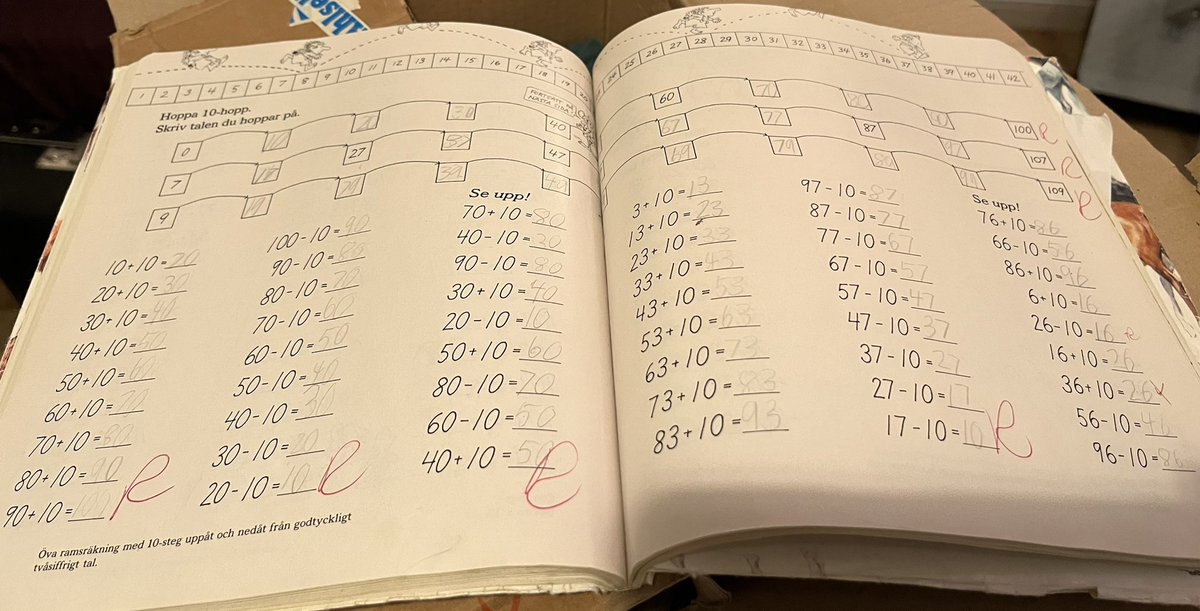 Ahlsel
1 2 3 4 5 6 7 8 9 10 11 12 13 14 15 16 17 18 19
Hoppa 10-hopp.
Skriv talen du hoppar på.
FORTSÄTT PÅ
NÄSTA SIDA
0 10 20 30 40
7 27 37 47
9 40
10+10=20
20+10=30
30+10=40
40+10=50
50+10=60
60+10=70
70+10=80
80+10=90
90+10=100
100-10=90
90-10=80
80-10=70
70-10=60
60-10=50
50-10=40
40-10=30
30-10=20
20-10=10
Se upp!
70+10=80
40-10=30
90-10=80
30+10=40
20-10=10
50+10=60
80-10=70
60-10=50
40+10=50
Öva ramsräkning med 10-steg uppåt och nedåt från godtyckligt
tvåsiffrigt tal.
24 25 26 27 28 29 30 31 32 33 34 35 36 37 38 39 40 41 42
60 70 80 90 100
67 77 87 97 107
69 79 109
3+10=13
13+10=23
23+10=33
33+10=43
43+10=53
53+10=63
63+10=73
73+10=83
83+10=93
97-10=87
87-10=77
77-10=67
67-10=57
57-10=47
47-10=37
37-10=27
27-10=17
17-10=10
Se upp!
76+10=86
66-10=56
86+10=96
6+10=16
26-10=16
16+10=26
36+10=26
56-10=46
96-10=86